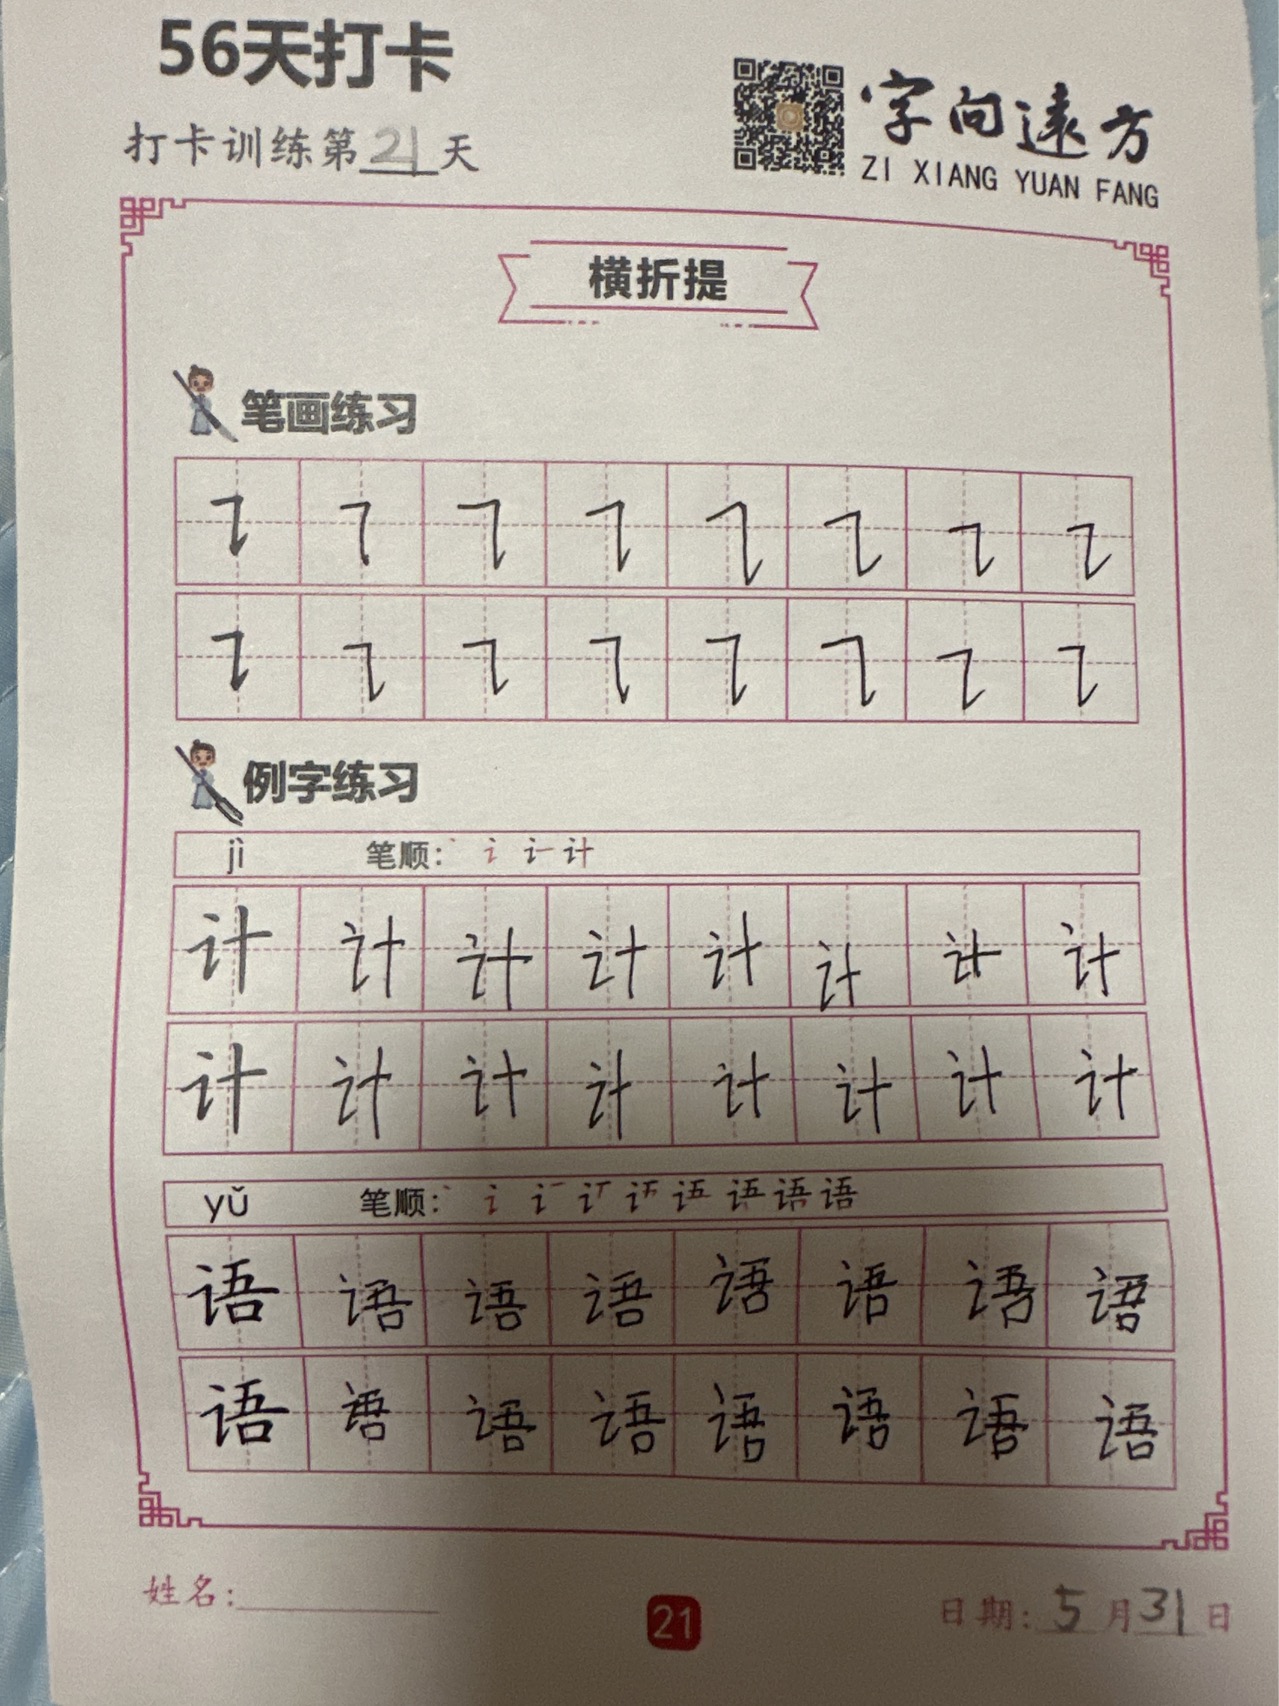 56天打卡
打卡训练第21天
字向遠方
ZI XIANG YUAN FANG
横折提
笔画练习
例字练习
jì 笔顺: 丶 讠 计
计 计 计 计 计 计 计 计
计 计 计 计 计 计 计 计
yǔ 笔顺: 语
语 语 语 语 语 语 语 语
语 语 语 语 语 语 语 语
姓名:
21
日期: 5月31日